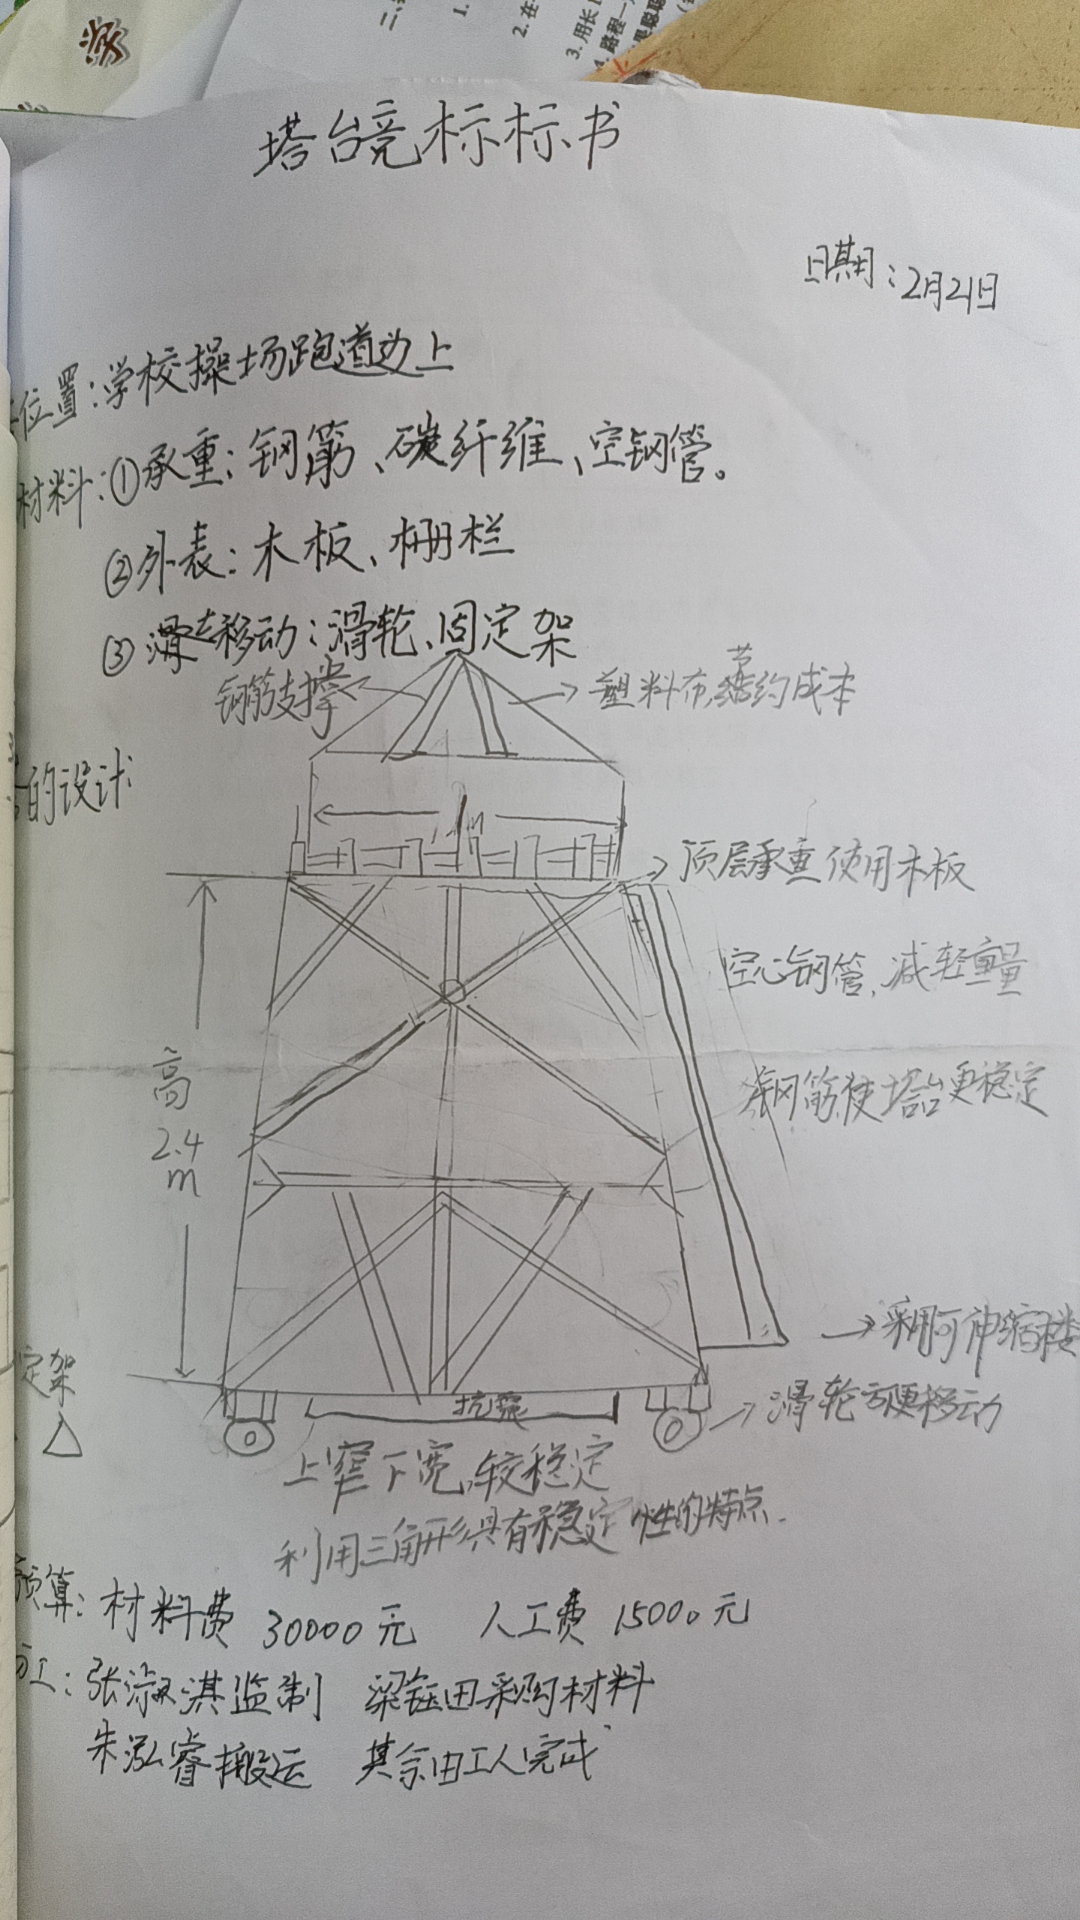 学
二、
1.
2. 在
3. 用长
4. 路程一
塔台竞标标书
日期：2月21日
位置：学校操场跑道边上
材料：①承重：钢筋、碳纤维、空钢管。
②外表：木板、栅栏
③滑移动：滑轮、固定架
钢筋支撑
塑料布,节约成本
的设计
1m
顶层承重使用木板
空心钢管,减轻重量
钢筋使塔台更稳定
高
2.4
m
采用可伸缩楼
定架
滑轮方便移动
抗震
上窄下宽,较稳定
利用三角形具有稳定性的特点.
预算：材料费 30000元 人工费 15000元
工：张淑淇监制 梁钰田采购材料
朱泓睿搬运 其余由工人完成